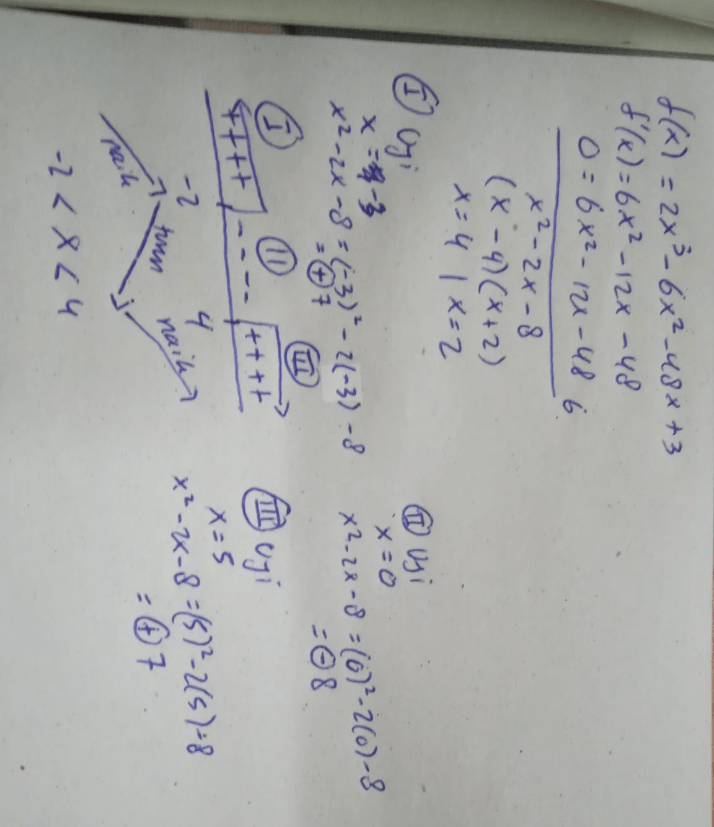 f(x) = 2x³ - 6x² - 48x + 3
f'(x) = 6x² - 12x - 48
0 = 6x² - 12x - 48 6
x² - 2x - 8
(x - 4)(x + 2)
x = 4 | x = 2
I Uji
x = -3
x² - 2x - 8 = (-3)² - 2(-3) - 8
= + 7
II Uji
x = 0
x² - 2x - 8 = (0)² - 2(0) - 8
= - 8
I II III
++++ ---- ++++
-2 4
naik turun naik
-2 < x < 4
III Uji
x = 5
x² - 2x - 8 = (5)² - 2(5) - 8
= + 7